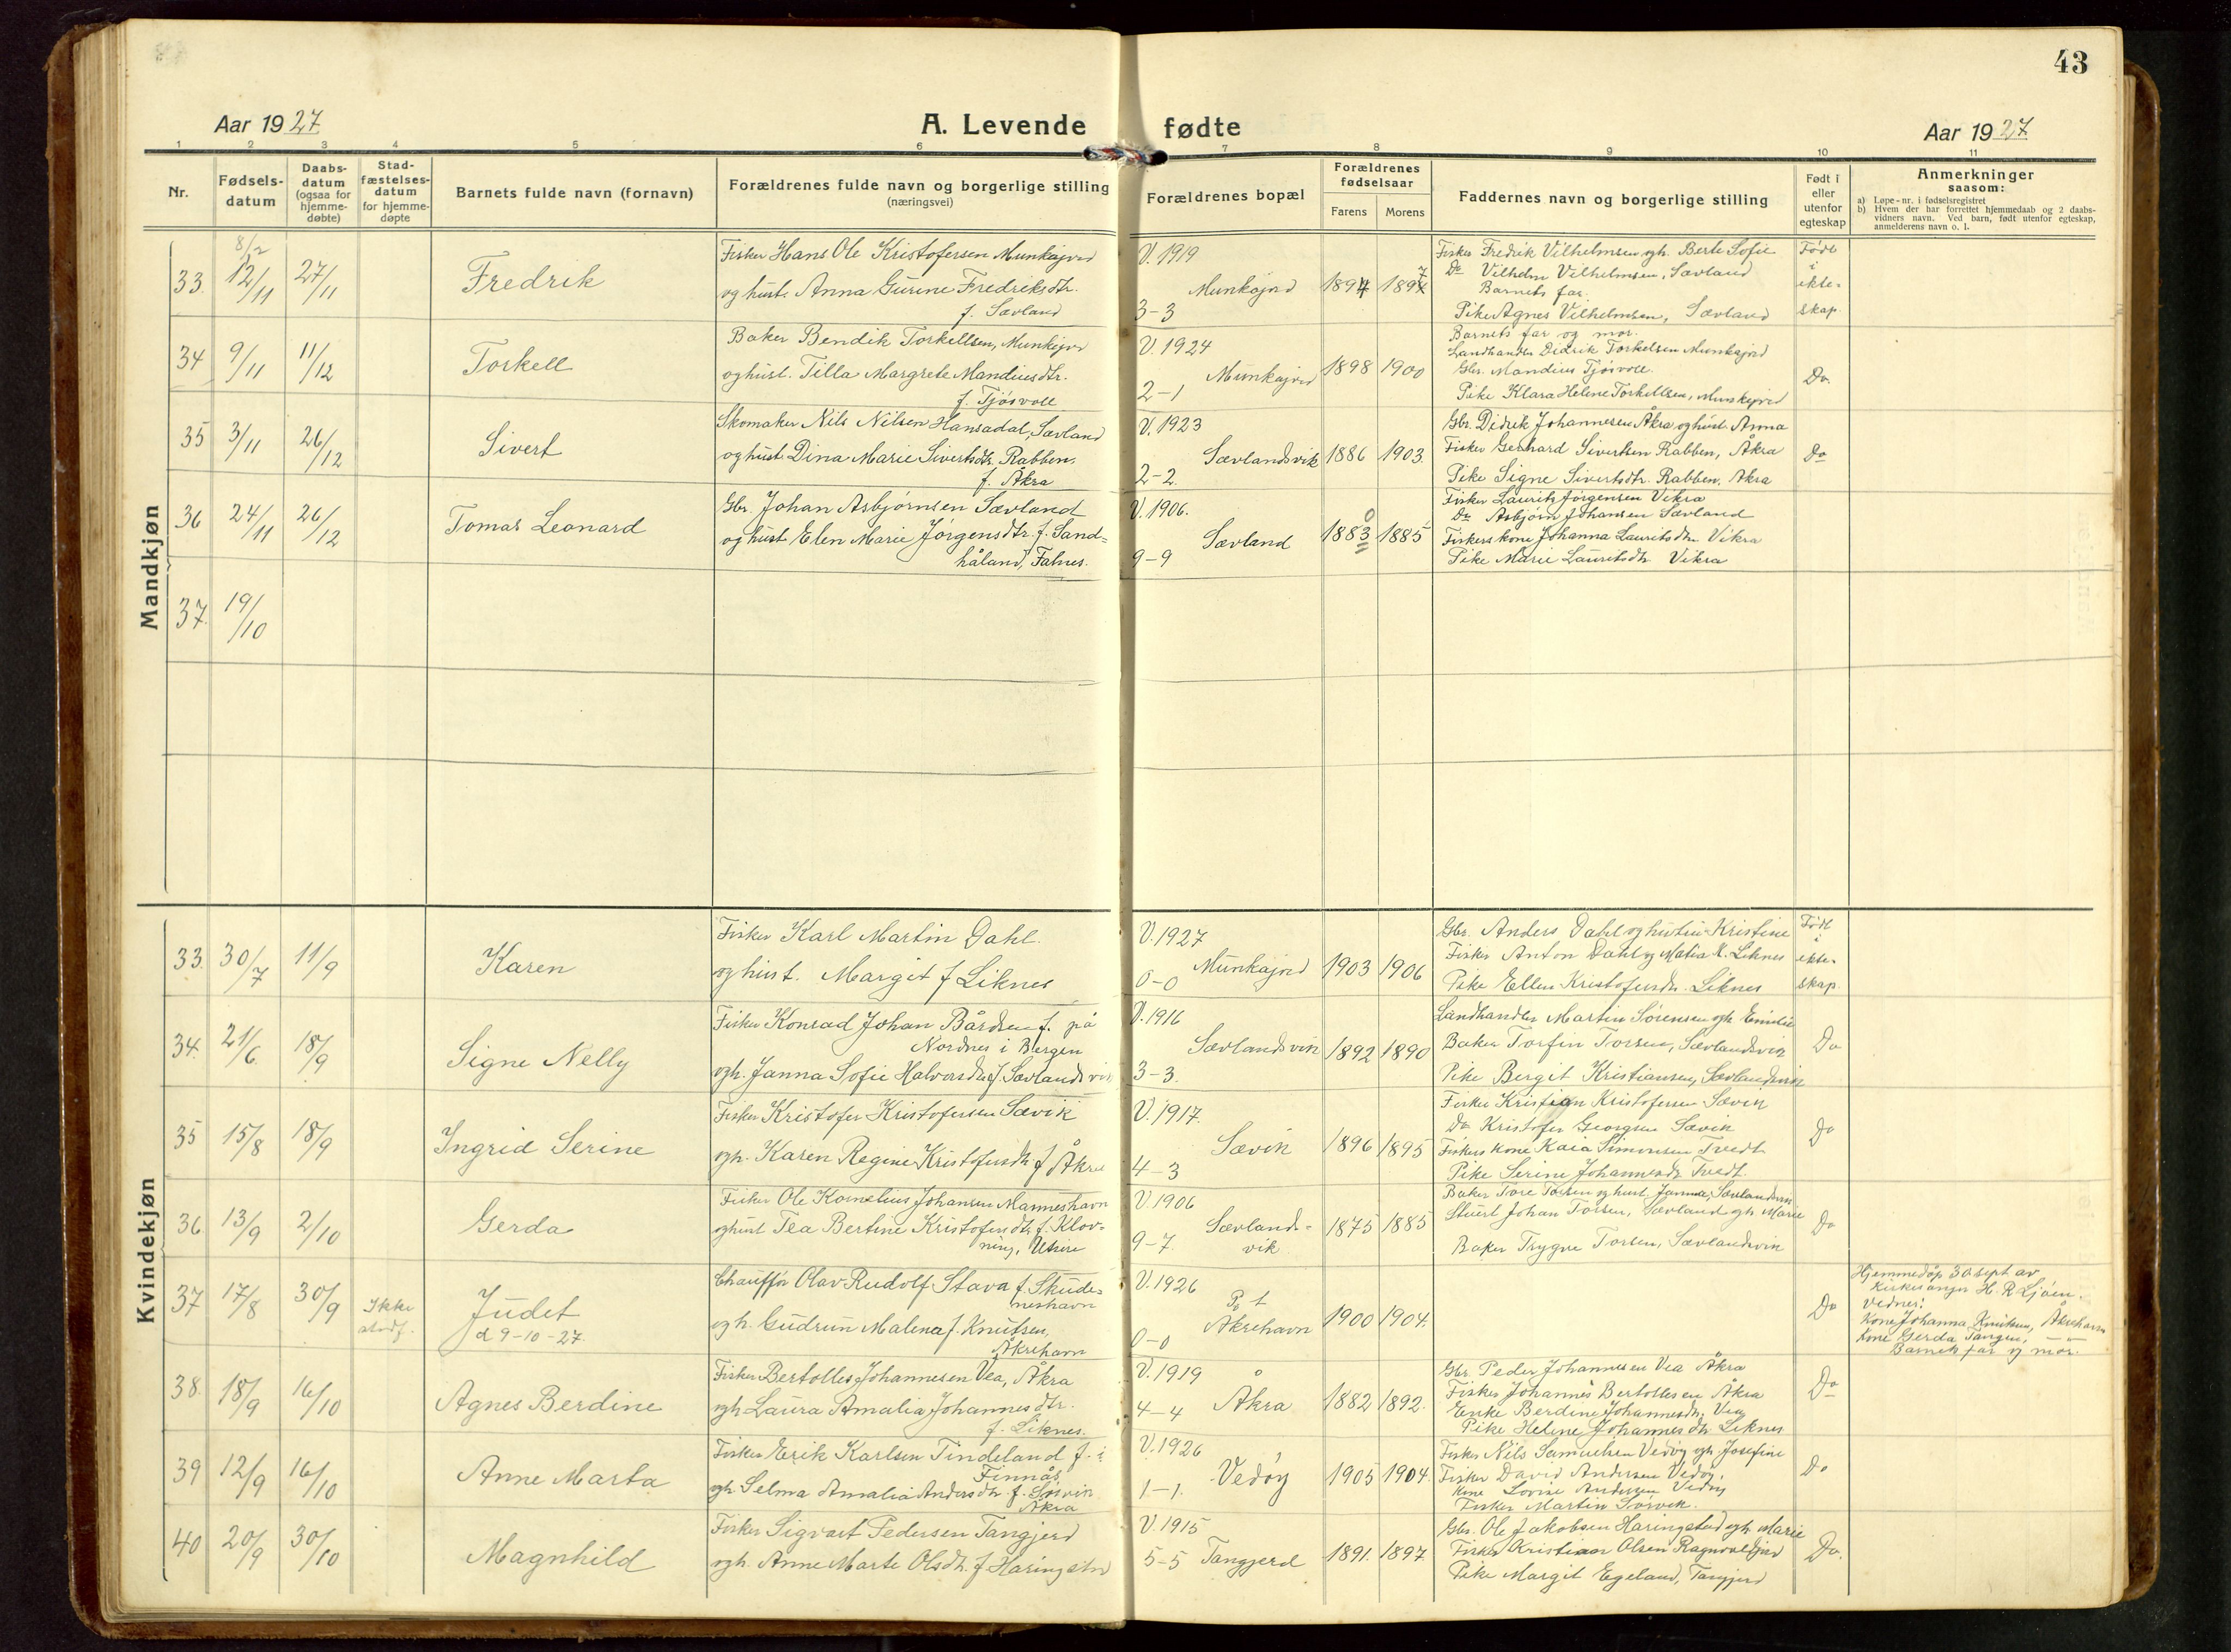 43
Aar 1927
A. Levende fødte
Aar 1927
1 2 3 4 5 6 7 8 9 10 11
Nr.
Fødsels-
datum
Daabs-
datum
(ogsaa for
hjemme-
døbte)
Stad-
fæstelses-
datum
for hjemme-
døpte
Barnets fulde navn (fornavn)
Forældrenes fulde navn og borgerlige stilling
(næringsvei)
Forældrenes bopæl
Forældrenes
fødselsaar
Farens Morens
Faddernes navn og borgerlige stilling
Født i
eller
utenfor
egteskap
Anmerkninger
saasom:
a) Løpe-nr. i fødselsregistret
b) Hvem der har forrettet hjemmedaab og 2 daabs-
vidners navn. Ved barn, født utenfor egteskap,
anmelderens navn o. l.
Mandkjøn
33. 8/12 12/11 27/11
Fredrik
Fisker Hans Ole Kristofersen Munkejord
og hust. Anna Gurine Fredriksdtr.
f. Sævland
V. 1919
Munkajord
3-3
1894 1897
Fisker Fredrik Vilhelmsen ogh. Berte Sofie
Do Vilhelm Vilhelmsen, Sævland
Barnets far.
Pike Agnes Vilhelmsen, Sævland
Født
i
ekte-
skap.
34 9/11 11/12
Torkell
Baker Bendik Torkellsen, Munkejord
og hust. Tilla Margrete Mandiusdtr.
f. Tjøsvoll
V. 1924
Munkajord
2-1
1898 1900
Barnets far og mor.
Landhandler Didrik Torkelsen Munkajord
Gbr. Mandius Tjøsvoll.
Pike Klara Helene Torkellsen, Munkejord
Do.
35 3/11 26/12
Sivert
Skomaker Nils Nilsen Hansadal, Sævland
og hust Dina Marie Sivertsdtr. Rabben,
f. Åkra
V. 1923
Sævlandsvik
2-2.
1886 1903.
Gbr. Didrik Johannesen Åkra og hust. Anna
Fisker Gerhard Sivertsen Rabben, Åkra
Pike Signe Sivertsdtr. Rabben, Åkra
Do
36 24/11 26/12
Tomas Leonard
Gbr. Johan Asbjørnsen Sævland
og hust Elen Marie Jørgensdtr. f. Sand-
håland, Falnes.
V. 1906.
Sævland
9-9
1883 0 1885
Fisker Laurits Jørgensen Vikra
Do Asbjørn Johansen Sævland
Fiskers kone Johanna Lauritsdtr. Vikra
Pike Marie Lauritsdtr Vikra
37. 19/10
Kvindekjøn
33. 30/7 11/9
Karen
Fisker Karl Martin Dahl.
og hust. Margit f Liknes
V. 1927
Munkajord
0-0
1903 1906
Gbr. Anders Dahl og hustru Kristine
Fisker Anton Dahl og Matia K. Liknes
Pike Ellen Kristofersdtr. Liknes
Født
i
ekte-
skap.
34. 21/6 18/9
Signe Nelly
Fisker Konrad Johan Bårdsen f. på
Nordnes i Bergen
ogh. Janna Sofie Halvorsdtr f. Sævlandsvik
V. 1916
Sævlandsvik
3-3.
1892 1890
Landhandler Martin Sørensen ogh Emilie
Baker Torfin Torsen, Sævlandsvik
Pike Bergit Kristiansen, Sævlandsvik
Do
35 15/8 18/9
Ingrid Serine
Fisker Kristofer Kristofersen Sævik
ogh. Karen Regine Kristofersdtr f Åkra
V. 1917.
Sævik
4-3
1896 1895
Fisker Kristian Kristofersen Sævik
Do Kristofer Georgsen Sævik
Fiskers kone Kaia Simonsen Tvedt
Pike Serine Johannesdtr Tvedt.
Do
36 13/9 2/10
Gerda
Fisker Ole Kornelius Johansen Manneshavn
og hust Tea Bertine Kristofersdtr f. Klov-
ning, Utsire
V. 1906
Sævlands-
vik
9-7.
1875 1885
Baker Tore Torsen og hust. Janna, Sævlandsvik
Stuert Johan Torsen, Sævland ogh Marie
Baker Trygve Torsen, Sævlandsvik
Do
37 17/8 30/9
Ikke
stadf.
Judet
d 9-10-27.
Chauffør Olav Rudolf Stava f. Skude-
neshavn
ogh. Gudrun Malena f. Knutsen,
Åkrehavn
V. 1926
Pt
Åkrehavn
0-0
1900 1904.
Do
Hjemmedøp 30 sept av
Kirkesanger H. R. Sjøen.
Vidner:
Kone Johanna Knutsen, Åkrehavn
Kone Gerda Tangen, — " —
Barnets far og mor.
38. 18/9 16/10
Agnes Berdine
Fisker Bertolles Johannesen Vea, Åkra
ogh Laura Amalia Johannesdtr.
f. Liknes.
V. 1919
Åkra
4-4
1882 1892.
Gbr. Peder Johannesen Vea Åkra
Fisker Johannes Bertollesen Åkra
Enke Berdine Johannesdtr. Vea
Pike Helene Johannesdtr Liknes
Do
39 12/9 16/10
Anne Marta
Fisker Erik Karlsen Tindeland f. i
Finnås
ogh. Selma Amalia Andersdtr. f. Sørvik
Åkra
V. 1926
Vedøy
1-1.
1905 1904.
Fisker Nils Samuelsen Vedøy ogh Josefine
Fisker David Andersen Vedøy.
Kone Lovise Andersen Vedøy
Fisker Martin Sørvik.
Do
40 20/9 30/10
Magnhild
Fisker Sigvart Pedersen Tangjerd
ogh. Anne Marte Olsdtr. f Haringstad
V. 1915
5-5 Tangjerd
1891. 1897
Gbr. Ole Jakobsen Haringstad ogh Marie
Fisker Kristian Olsen Ragnvaldjord
Pike Margit Egeland, Tangjerd
Do.